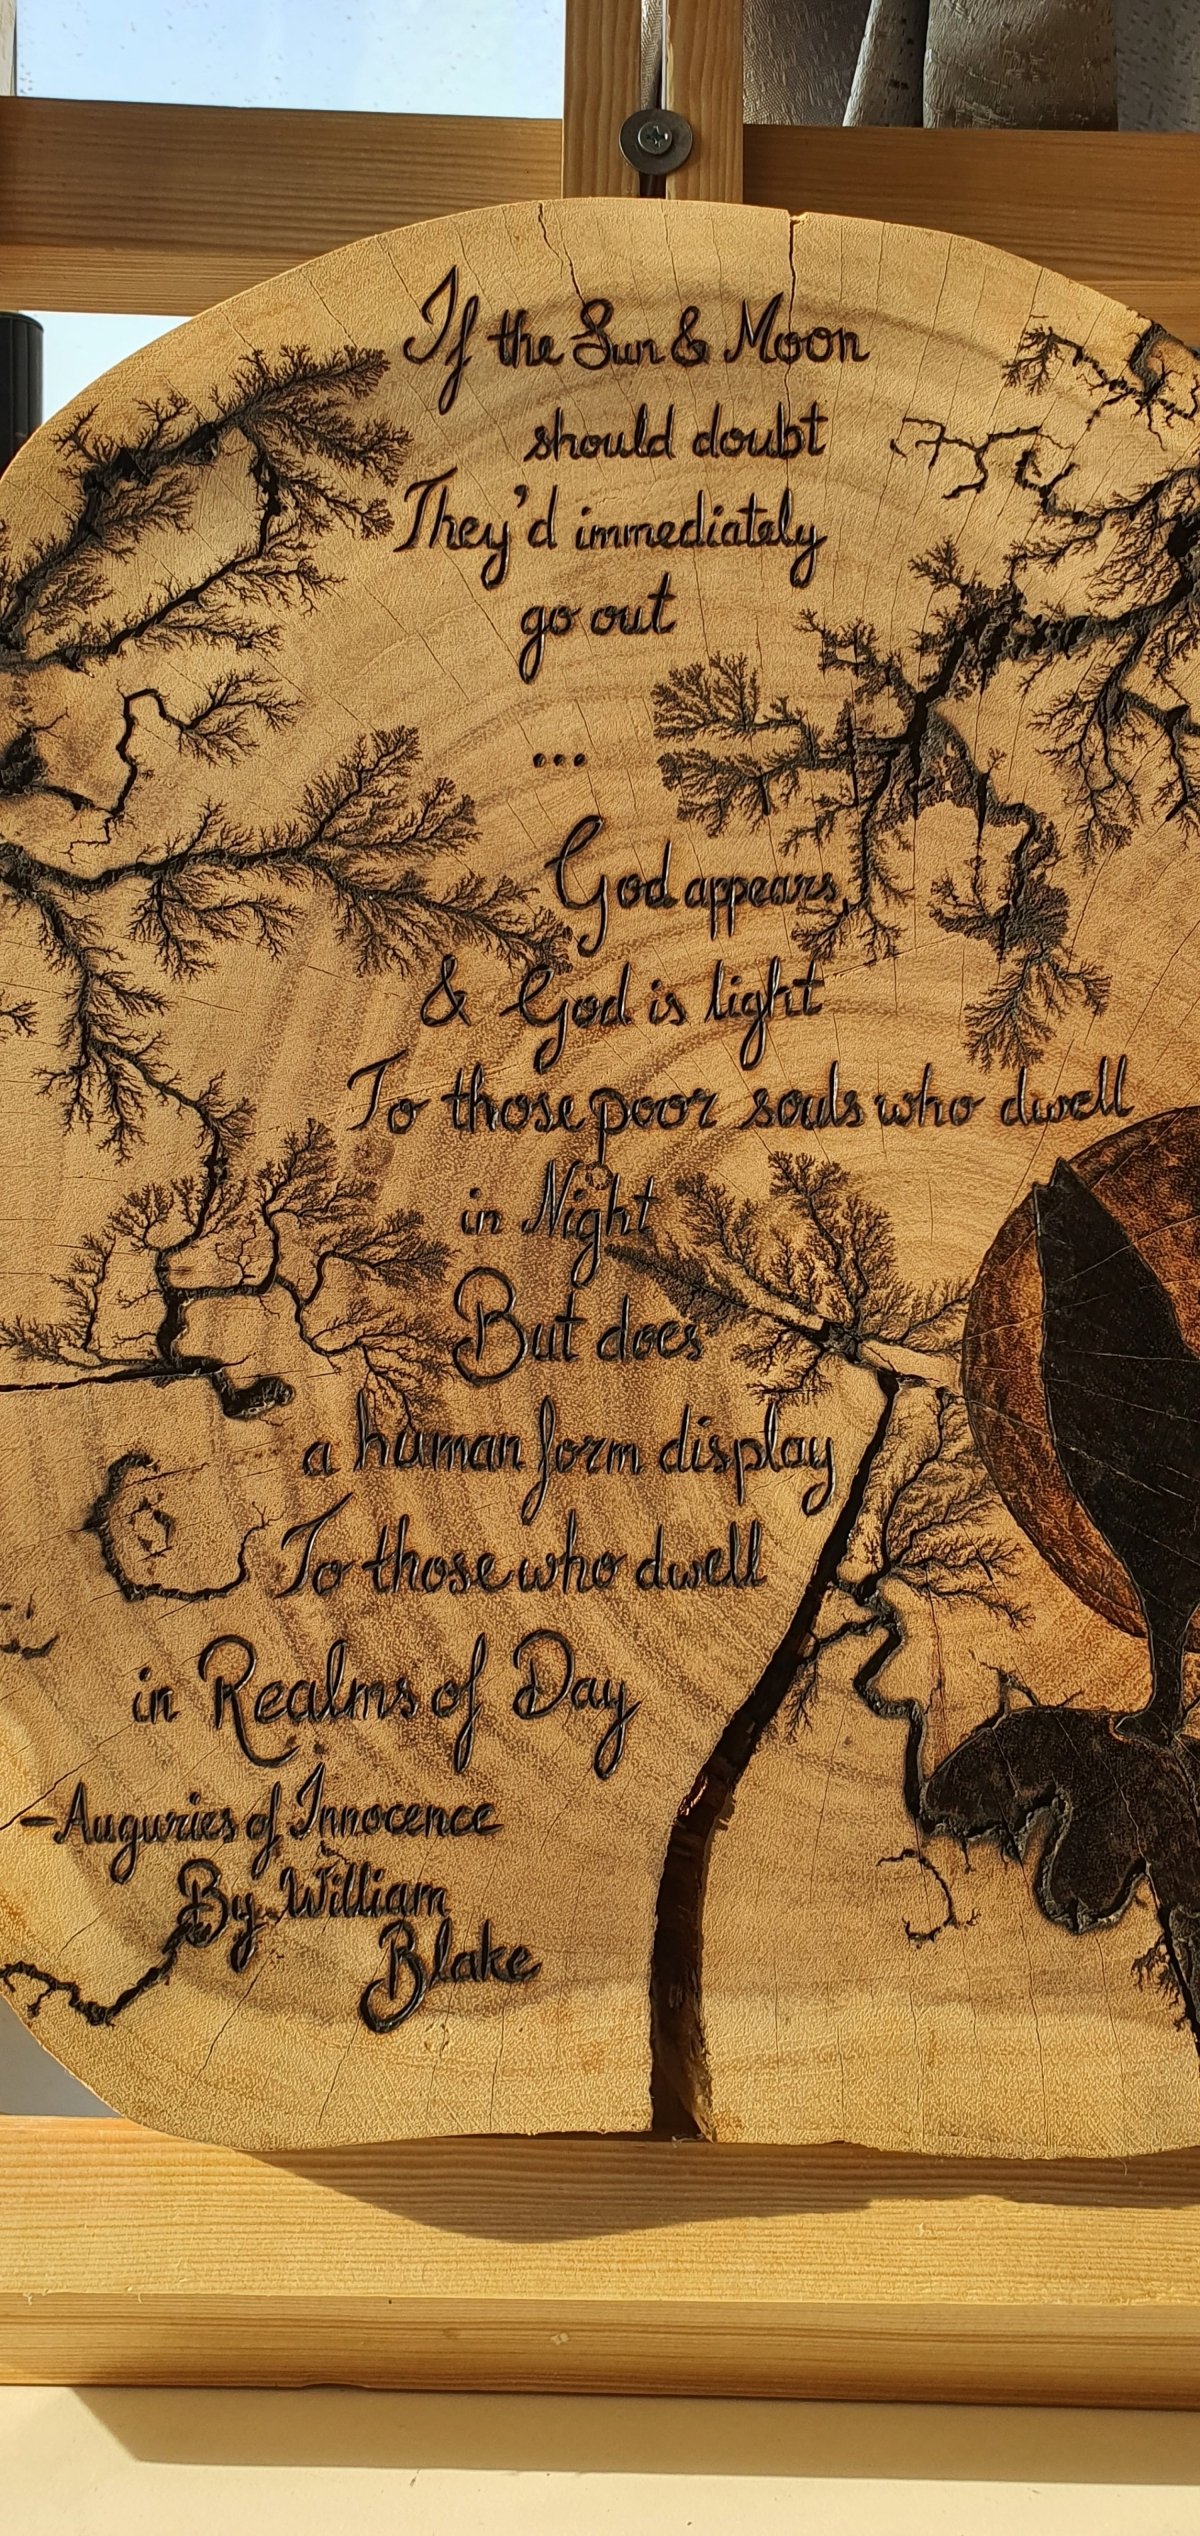 If the Sun & Moon
should doubt
They'd immediately
go out
...
God appears
& God is light
To those poor souls who dwell
in Night
But does
a human form display
To those who dwell
in Realms of Day
-Auguries of Innocence
By William
Blake